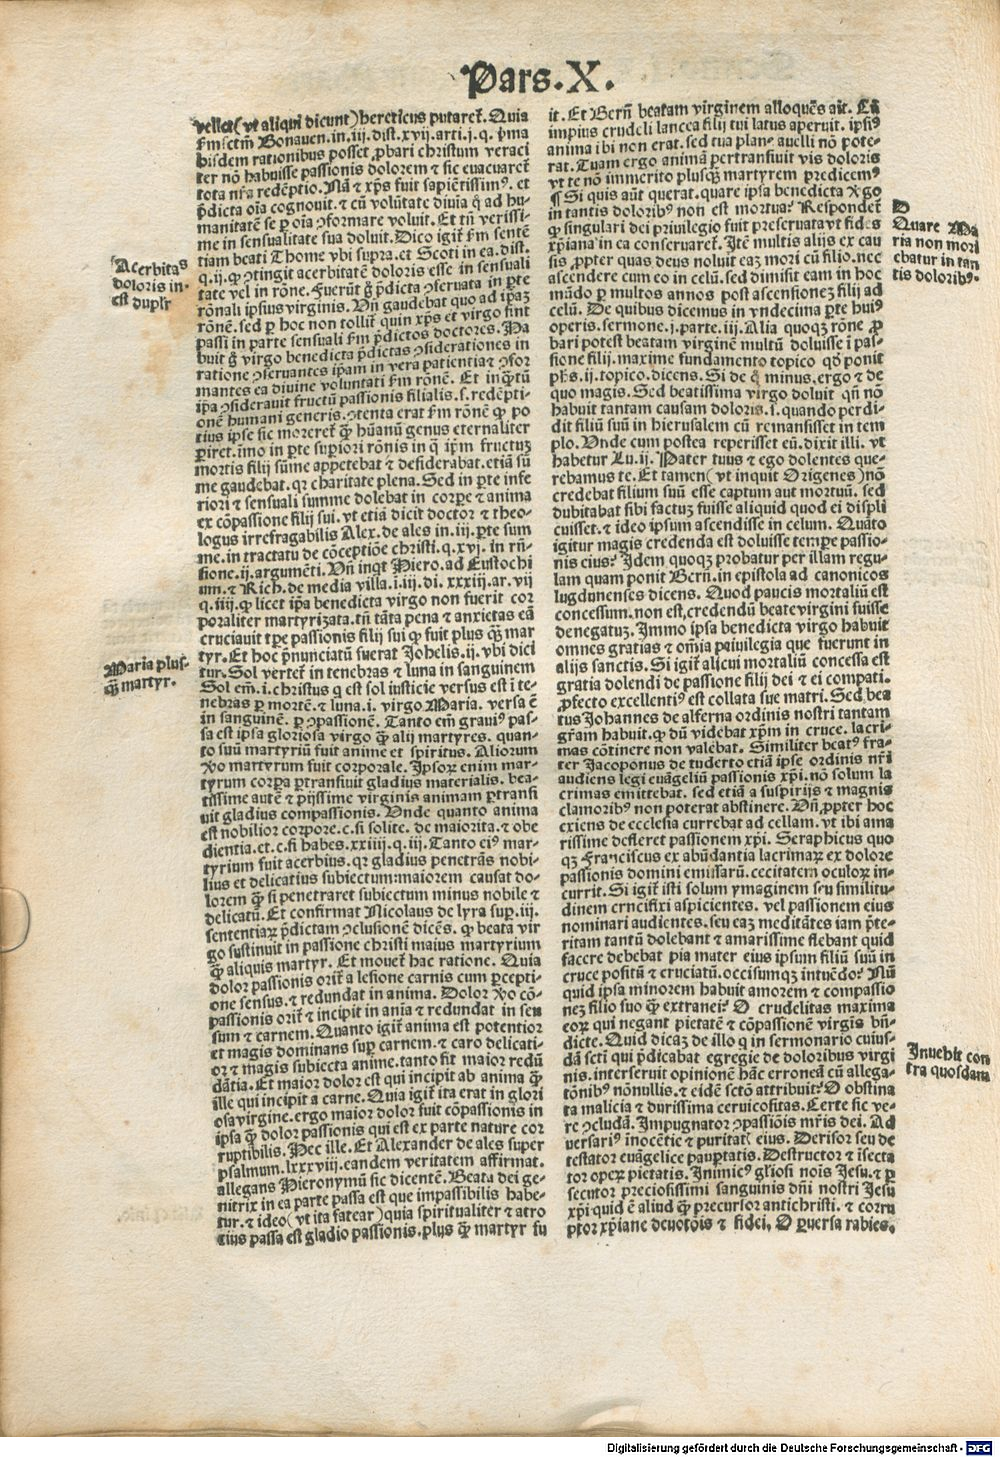 Pars.X.
vellet(vt aliqui dicunt)hereticus putaret̃. Quia
ẜm sctm̃ Bonauen.in.iij.dist.xvij.arti.j.q.p̃ma
hisdem rationibus posset ꝓbari christum veraci
ter nõ habuisse passionis dolorem ⁊ sic euacuaret̃
tota nr̃a redẽptio. Nã ⁊ xp̃s fuit sapiẽtissimꝰ. et
p̃dicta oĩa cognouit.⁊ cũ volũtate diuĩa q̃ ad hu-
manitatẽ se ꝑ oĩa ↄformare voluit. Et tñ verissi-
me in sensualitate sua doluit. Dico igit̃ ẜm sentẽ
tiam beati Thome vbi supra.et Scoti in ea.dist.
q.ij.ꝙ ↄtingit acerbitatẽ doloris esse in sensuali
tate vel in rõne. Fuerũt g̃ p̃dicta ↄseruata in ꝑte
rõnali ipsius virginis. Vñ gaudebat quo ad ip̃aꝫ
rõnẽ. sed ꝑ hoc non tollit̃ quin xp̃s et virgo sint
passi in parte sensuali ẜm p̃dictos doctores. Ha
buit g̃ virgo benedicta p̃dictas ↄsiderationes in
ratione ↄseruantes ip̃am in vera patientia⁊ ↄfor
mantes eã diuine voluntati ẜm rõnẽ. Et inq̃tũ
ip̃a ↄsiderauit fructũ passionis filialis.s.redẽpti-
onẽ humani generis.ↄtenta erat ẜm rõnẽ ꝙ po
tius ipse sic moreret̃ q̃ hũanũ genus eternaliter
ꝑiret.imo in ꝑte supiori rõnis in q̃ ip̃m fructuꝫ
mortis filij sũme appetebat ⁊ desiderabat.etiã sũ
me gaudebat.qr charitate plena. Sed in ꝑte infe
riori ⁊ sensuali summe dolebat in corꝑe ⁊ anima
ex cõpassione filij sui. vt etiã dicit doctor ⁊ theo-
logus irrefragabilis Alex.de ales in.iij.ꝑte sum
me.in tractatu de cõceptiõe christi.q.xvj. in rñ-
sione.ij.argumẽti. Vñ inqt Hiero.ad Eustochi
um.⁊ Rich.de media villa.i.iij.di.xxxiij.ar.vij
q.iiij.ꝙ licet ip̃a benedicta virgo non fuerit cor
poraliter martyrizata.tñ tãta pena ⁊ anxietas eã
cruciauit tꝑe passionis filij sui ꝙ fuit plus q̃ꝫ mar
tyr. Et hoc p̃nunciatũ fuerat Johelis.ij.vbi dici
tur. Sol vertet̃ in tenebras ⁊ luna in sanguinem
Sol em̃.i.christus q est sol iusticie versus est ĩ te-
nebras ꝑ mortẽ.⁊ luna.i.virgo Maria. versa ẽ
in sanguinẽ. ꝑ ↄpassionẽ. Tanto em̃ grauiꝰ pas-
sa est ipsa gloriosa virgo q̃ alij martyres. quan-
to suũ martyriũ fuit anime et spiritus. Aliorum
ꝟo martyrum fuit corporale. Ipsoꝝ enim mar-
tyrum corꝑa ꝑtransiuit gladius materialis. bea-
tissime autẽ ⁊ pijssime virginis animam ꝑtransi
uit gladius compassionis. Unde quanto anima
est nobilior corpore.c.si solite. de maiorita.⁊ obe
dientia.et.c.si habes.xxiiij.q.iij. Tanto eiꝰ mar-
tyrium fuit acerbius.qr gladius penetrãs nobi-
lius et delicatius subiectum:maiorem causat do-
lorem q̃ si penetraret subiectum minus nobile ⁊
delicatũ. Et confirmat Nicolaus de lyra suꝑ.iij.
sententiaꝝ p̃dictam ↄclusionẽ dicẽs. ꝙ beata vir
go sustinuit in passione christi maius martyrium
q̃ aliquis martyr. Et mouet̃ hac ratione. Quia
dolor passionis orit̃ a lesione carnis cum ꝑcepti-
one sensus.⁊ redundat in anima. Dolor ꝟo cõ-
passionis orit̃ ⁊ incipit in aĩa ⁊ redundat in sen
sum ⁊ carnem. Quanto igit̃ anima est potentior
et magis dominans suꝑ carnem.⁊ caro delicati-
or ⁊ magis subiecta anime.tanto fit maior redũ
dãtia. Et maior dolor est qui incipit ab anima q̃
ille qui incipit a carne. Quia igit̃ ita erat in glori
osa virgine.ergo maior dolor fuit cõpassionis in
ipsa q̃ dolor passionis qui est ex parte nature cor
ruptibilis. Hec ille. Et Alexander de ales super
psalmum.lxxxviij.eandem veritatem affirmat.
allegans Hieronymũ sic dicentẽ. Beata dei ge-
nitrix in ea parte passa est que impassibilis habe-
tur.⁊ ideo(vt ita fatear)quia spiritualiter ⁊ atro
cius passa est gladio passionis.plus q̃ martyr fu
Acerbitas
doloris in-
est dupl̃r
Maria plus-
q̃ martyr.
it. Et Berñ beatam virginem alloquẽs ait. Cũ
impius crudeli lancea filij tui latus aperuit. ipsiꝰ
anima ibi non erat. sed tua plane auelli nõ pote-
rat. Tuam ergo animã pertransiuit vis doloris
vt te nõ immerito plusq̃ martyrem predicemꝰ
¶ Si quis aũt querat. quare ipsa benedicta ꝟgo
in tantis doloribꝰ non est mortua? Respondet̃
ꝙ singulari dei priuilegio fuit preseruata vt fides
xp̃iana in ea conseruaret̃. Itẽ multis alijs ex cau
sis ꝓpter quas deus noluit eaꝫ mori cũ filio.nec
ascendere cum eo in celũ.sed dimisit eam in hoc
mũdo ꝑ multos annos post ascensioneꝫ filij ad
celũ. De quibus dicemus in vndecima ꝑte huiꝰ
operis. sermone.j.parte.iij. Alia quoqꝫ rõne ꝓ
bari potest beatam virginẽ multũ doluisse ĩ pas-
sione filij. maxime fundamento topico qd̃ ponit
ph̃s.ij.topico.dicens. Si de q̃ minus.ergo ⁊ de
quo magis. Sed beatissima virgo doluit qñ nõ
habuit tantam causam doloris.i.quando perdi-
dit filiũ suũ in hierusalem cũ remansisset in tem
plo. Unde cum postea reperisset eũ.dixit illi. vt
habetur Lu.ij. Pater tuus ⁊ ego dolentes que-
rebamus te. Et tamen(vt inquit Origenes)nõ
credebat filium suũ esse captum aut mortuũ. sed
dubitabat sibi factuꝫ fuisse aliquid quod ei displi
cuisset.⁊ ideo ipsum ascendisse in celum. Quãto
igitur magis credenda est doluisse temꝑe passio-
nis eius? Idem quoqꝫ probatur per illam regu-
lam quam ponit Berñ.in epistola ad canonicos
lugdunenses dicens. Quod paucis mortaliũ est
concessum.non est,credendũ beate virgini fuisse
denegatuꝫ. Immo ipsa benedicta virgo habuit
omnes gratias ⁊ omnia priuilegia que fuerunt in
alijs sanctis. Si igit̃ alicui mortaliũ concessa est
gratia dolendi de passione filij dei ⁊ ei compati.
ꝓfecto excellentiꝰ est collata sue matri. Sed bea
tus Johannes de alferna ordinis nostri tantam
gr̃am habuit.ꝙ dũ videbat xp̃m in cruce.lacri-
mas cõtinere non valebat. Similiter beatꝰ fra-
ter Jacoponus de tuderto etiã ipse ordinis nr̃i
audiens legi euãgeliũ passionis xp̃i.nõ solum la
crimas emittebat. sed etiã a suspirijs ⁊ magnis
clamoribꝰ non poterat abstinere. Vñ ꝓpter hoc
exiens de ecclesia currebat ad cellam.vt ibi ama
rissime defleret passionem xp̃i. Seraphicus quo
qꝫ Franciscus ex abũdantia lacrimaꝝ ex dolore
passionis domini emissarũ.cecitatem oculoꝝ in-
currit. Si igit̃ isti solum ymaginem seu similitu-
dinem crucifixi aspicientes. vel passionem eius
nominari audientes.seu eaꝫ meditãtes iam p̃te-
ritam tantũ dolebant ⁊ amarissime flebant quid
facere debebat pia mater eius ipsum filiũ suũ in
cruce positũ ⁊ cruciatũ.occisumqꝫ intuẽdo? Nũ
quid ipsa minorem habuit amorem ⁊ compassio
neꝫ filio suo q̃ extranei? O crudelitas maxima
eoꝝ qui negant pietatẽ ⁊ cõpassionẽ virgis bñ-
dicte. Quid dicaꝫ de illo q in sermonario cuius-
dã scti qui p̃dicabat egregie de doloribus virgi
nis. interseruit opinionẽ hãc erroneã cũ allega-
tõnibꝰ nõnullis.⁊ eidẽ sctõ attribuit? O obstina
ta malicia ⁊ durissima ceruicositas. Certe sic ve-
re ↄcludã. Impugnator ↄpassiõis mr̃is dei. Ad
uersariꝰ inocẽtie ⁊ puritat̃ eius. Derisor seu de
testator euãgelice pauꝑtatis. Destructor ⁊ ĩsecta
tor opeꝝ pietatis. Inimicꝰ gl̃iosi nois Jesu.⁊ ꝑ
secutor preciosissimi sanguinis dñi nostri Jesu
xp̃i quid ẽ aliud q̃ precursor antichristi. ⁊ corru
ptor xp̃iane deuotõis ⁊ fidei. O ꝑuersa rabies.
D
Quare Ma
ria non mori
ebatur in tan
tis doloribꝰ.
Inuehit con
tra quosdam
Digitalisierung gefördert durch die Deutsche Forschungsgemeinschaft - DFG